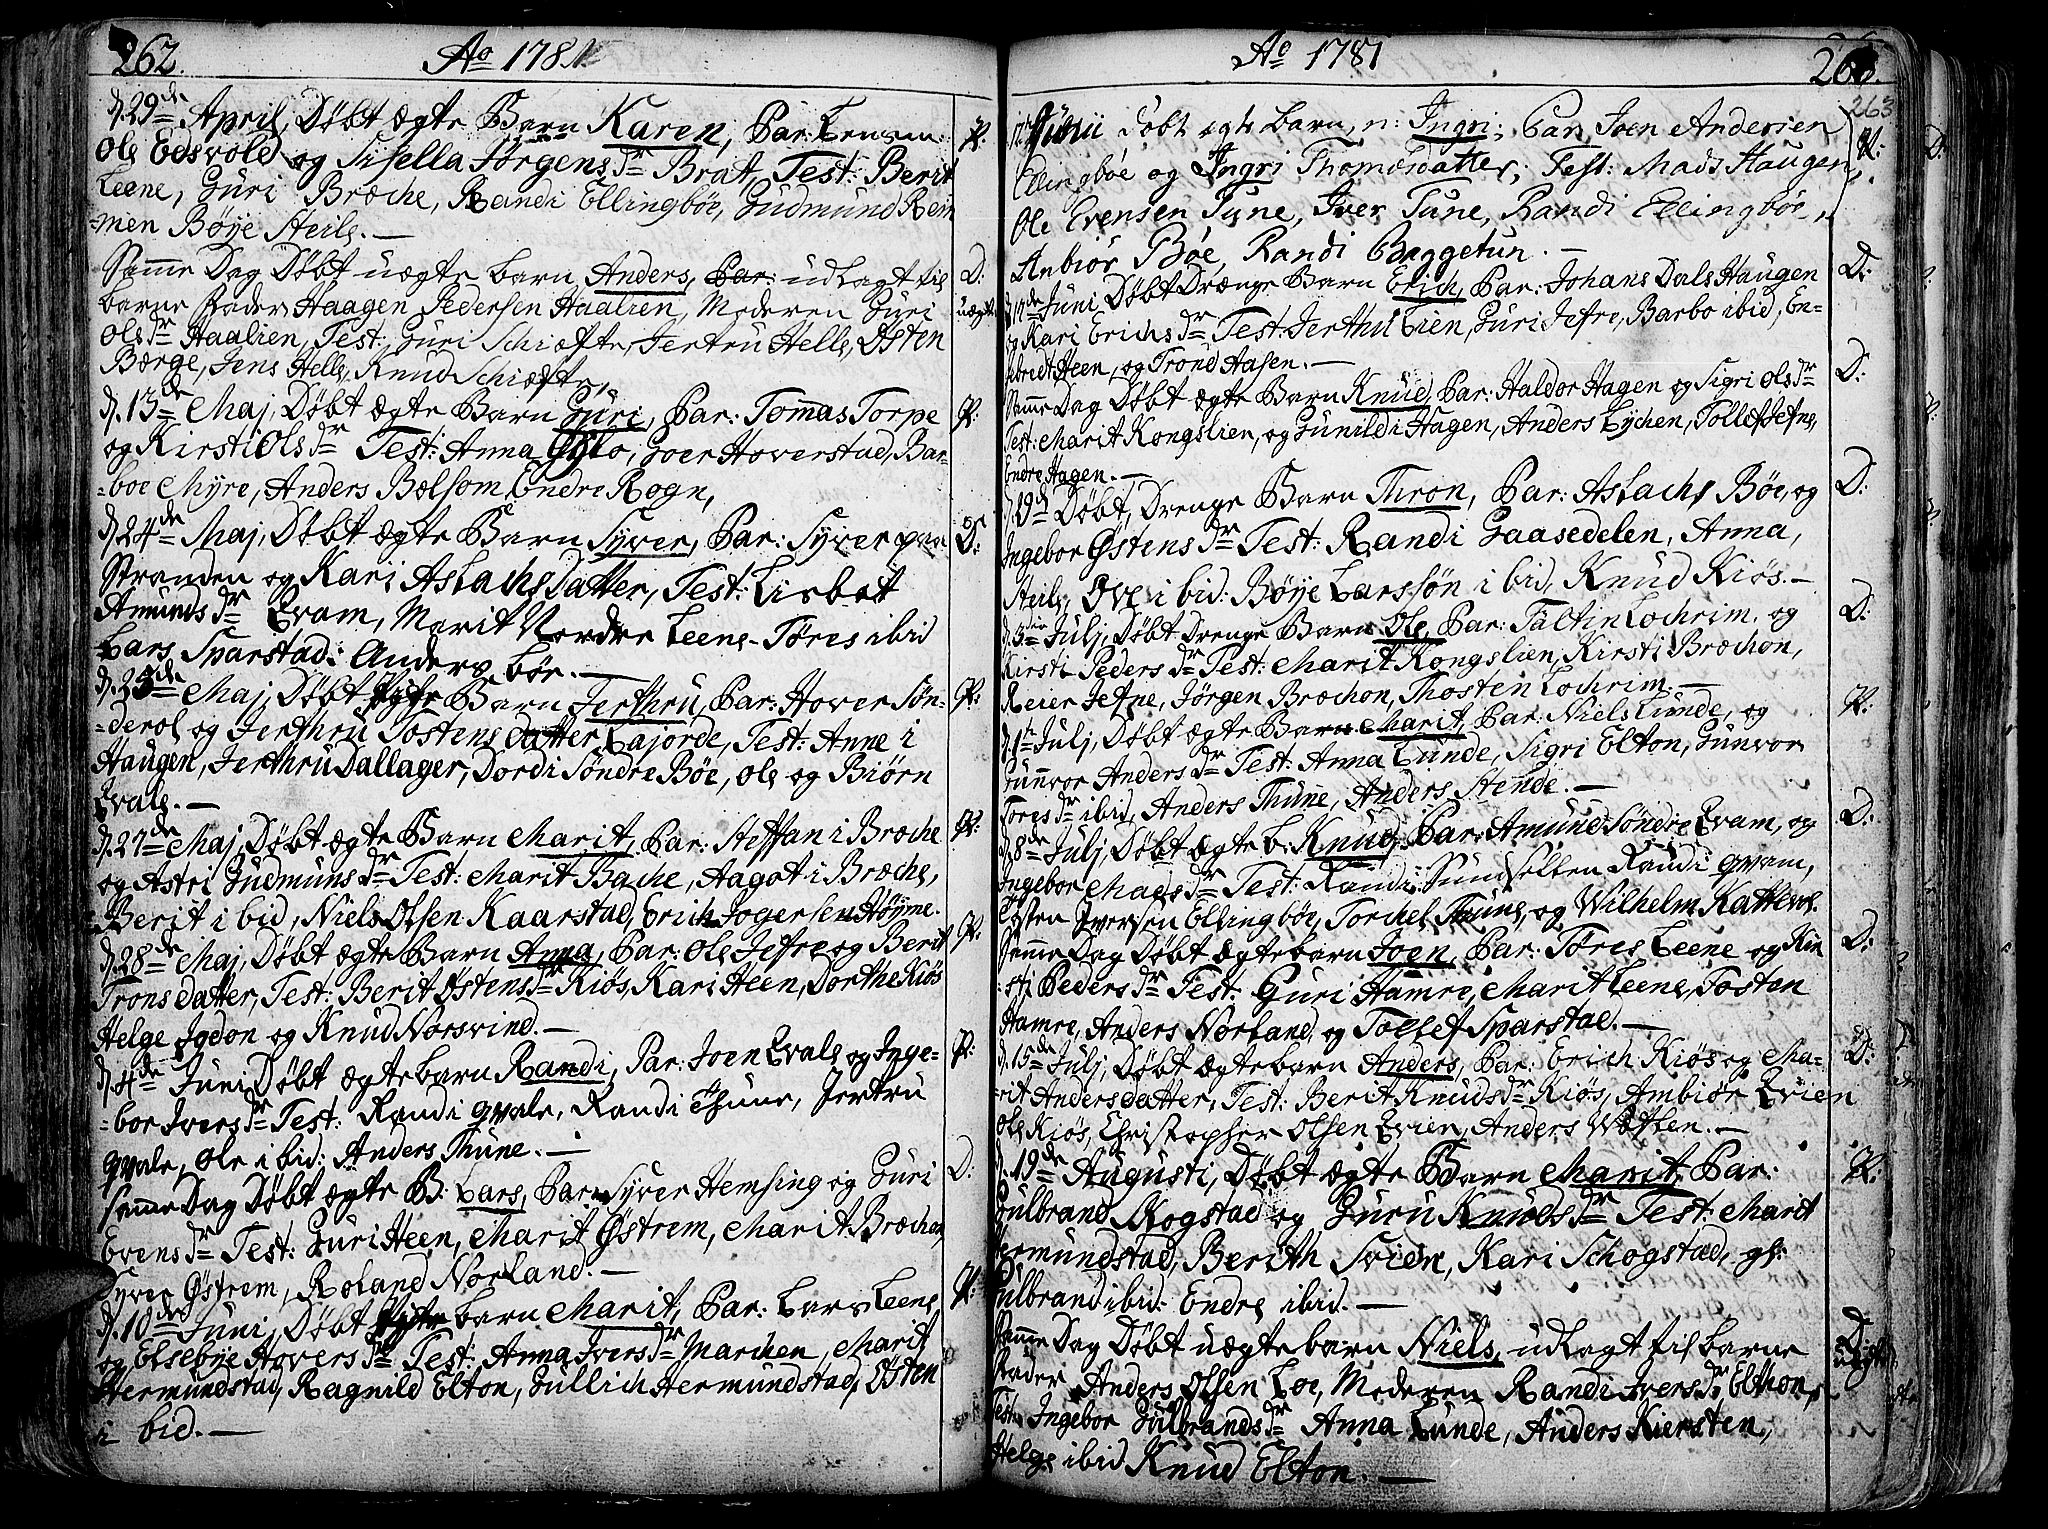 262.
Ao 1781
d. 29de April, Døbt ægte Barn Karen, Par: Lensm.
Ole Edsvold og Sisella Jørgensdr Brat, Test: Berit
Leene, Guri Bræche, Randi Ellingbøe, Gudmund Rem
-men Bøye Steile. —
Samme Dag Døbt uægte barn Anders, Par: udlagt til
barne Fader Haagen Pedersen Haalien, Moderen Guri
Olsdr Haalien, Test: Guri Schiefte, Jertru Helle, Østen
Børge, Jens Helle, Knud Schiefte,
d. 13de Maj, Døbt ægte Barn Guri, Par: Tommas Torpe
og Kirsti Olsdr Test: Anna Gylo, Goer Hoverstad, Bar-
-boe Myre, Anders Bælsom, Endre Rogn,
d. 24de Maj, Døbt ægte Barn Syver, Par: Syver paa
Stranden og Kari AslachsDatter, Test: Lisbet
Amundsdr Qvam, Marit Nordre Leene Tøres ibid
Lars Sparstad: Anders bøe. —
d. 25de Maj, Døbt ægte Barn Jerthru, Par: Hover Søn-
-derol og Jerthru Tostens datter Lajorde, Test: Anne i
Haugen, Jerthru Dallager, Dordi Søndre Bøe, Ole og Biørn
Qvale. —
d. 27de Maj, Døbt ægte Barn Marit, Par: Steffan i Bræche
og Astri Gudmunsdr Test: Marit Bache, Aagot i Bræche,
Berit i bid, Niels Olsen Kaarstad, Erich Jogersen Høyme.
d. 28de Maj, Døbt ægte Barn Anna, Par: Ole Jefre og Berit
Trons datter, Test: Berit Østensdr Kiøs, Kari Heen, Dorthe Kiøs
Helge Jgdon og Knud Norsvind. —
d. 4de Juni Døbt ægte barn Randi, Par: Joen Qvale og Inge-
-bor Iversdr Test: Randi qvale, Randi Thune, Jertru
qvale, Ole i bid: Anders Thune. —
samme Dag Døbt ægte B: Lars, Par: Syver Hemsing og Guri
Evensdr Test: Guri Heen, Marit Østrem, Marit Bræchon,
Syver Østrem, Roland Norland. —
d. 10de Juni, Døbt ægte barn Marit, Par: Lars Leene,
og Elsebye Hoversdr Test: Anna Iversdr Marchen, Marit
Hermundstad, Ragnild Elton, Gullich Hermundstad, Østen
i bid. —
P:
D:
uægte
P:
D:
P:
P:
P:
P:
D:
P:
Ao 1781
263
d. 12te Junii døbt egte barn, n: Ingri; Par Joen Andersen
Ellingbøe og Ingri Thomesdatter, Test: Mads Haugen,
Ole Evensen Tune, Iver Tune, Randi Ellingbøe,
Anbiør Bøe, Randi Baggetun. —
d. 12de Juni Døbt Drænge Barn Erich, Par: Johans Dals Haugen
og Kari Erichsdr Test: Jerthu Eien, Guri Jefre, Barbo ibid, En-
gebredt Heen, og Trond Aasen. —
Samme Dag Døbt ægte Barn Knud, Par: Haldor Hagen og Sigri Olsdr
Test: Marit Kongslien, og Gunild i Hagen, Anders Lychen, Tollef Jefne,
Endre Hagen. —
d. 9de Døbt, Drenge Barn Thron, Par: Aslachs Bøe, og
Ingebor Østensdr Test: Randi Gaasedelen, Anna,
Steile, Ove i bid: Bøye Larssøn i bid, Knud Kiøs. —
d. 3die Julj, Døbt Drenge Barn Ole, Par: Faltin Lochrim, og
Kirsti Pedersdr Test: Marit Kongslien, Kirsti Bræchon,
Reier Jefne, Jørgen Bræchon, Thosten Lochrim. —
d. 1te Julj, Døbt ægte Barn Marit, Par: Niels Lunde, og
Gunvor Andersdr Test: Anna Lunde, Sigri Elton, Gunvor
Toresdr ibid, Anders Thune, Anders Stende. —
d. 8de Julj, Døbt ægte b: Knud, Par: Amund Søndre Qvam, og
Ingebor Madsdr Test: Randi Sundsetten Randi qvam,
Østen Iversen Ellingbøe, Torchel Thune, og Wilhelm Kattevel.
Samme Dag Døbt ægte barn Joen, Par: Tøres Leene og Kir
-sti Pedersdr Test. Guri Hamre, Marit Leene, Tosten
Hamre, Anders Norland, og Tollef Sparstad. —
d. 15de Julj, Døbt ægte barn Anders, Par: Erich Kiøs og Ma-
rit Anders datter, Test: Berit Knudsdr Kiøs, Ambiør Qvien
Ole Kiøs, Christopher Olsen Qvien, Anders Wøtten. —
d. 19de Augusti, Døbt ægte Barn Marit, Par:
Gulbrand Rogstad og Guru Knudsdr Test: Marit
Hermundstad, Berith Svien, Kari Schogstad, gl:
Gulbrand ibid: Endre ibid. —
Samme Dag Døbt uægte barn Niels, udlagt til barne
Fader Anders Olsen Loe, Moderen Randi Iversdr Elthon,
Test: Ingebor Gulbrandsdr Anna Lunde, Anders Kiersten,
Helge ibid Knud Elton. —
263
P:
D:
D:
D:
D:
P:
D:
D:
D:
P:
D:
uægte